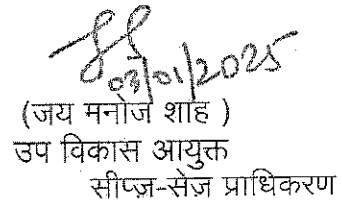 03/01/2025
(जय मनोज शाह )
उप विकास आयुक्त
सीप्ज़-सेज़ प्राधिकरण